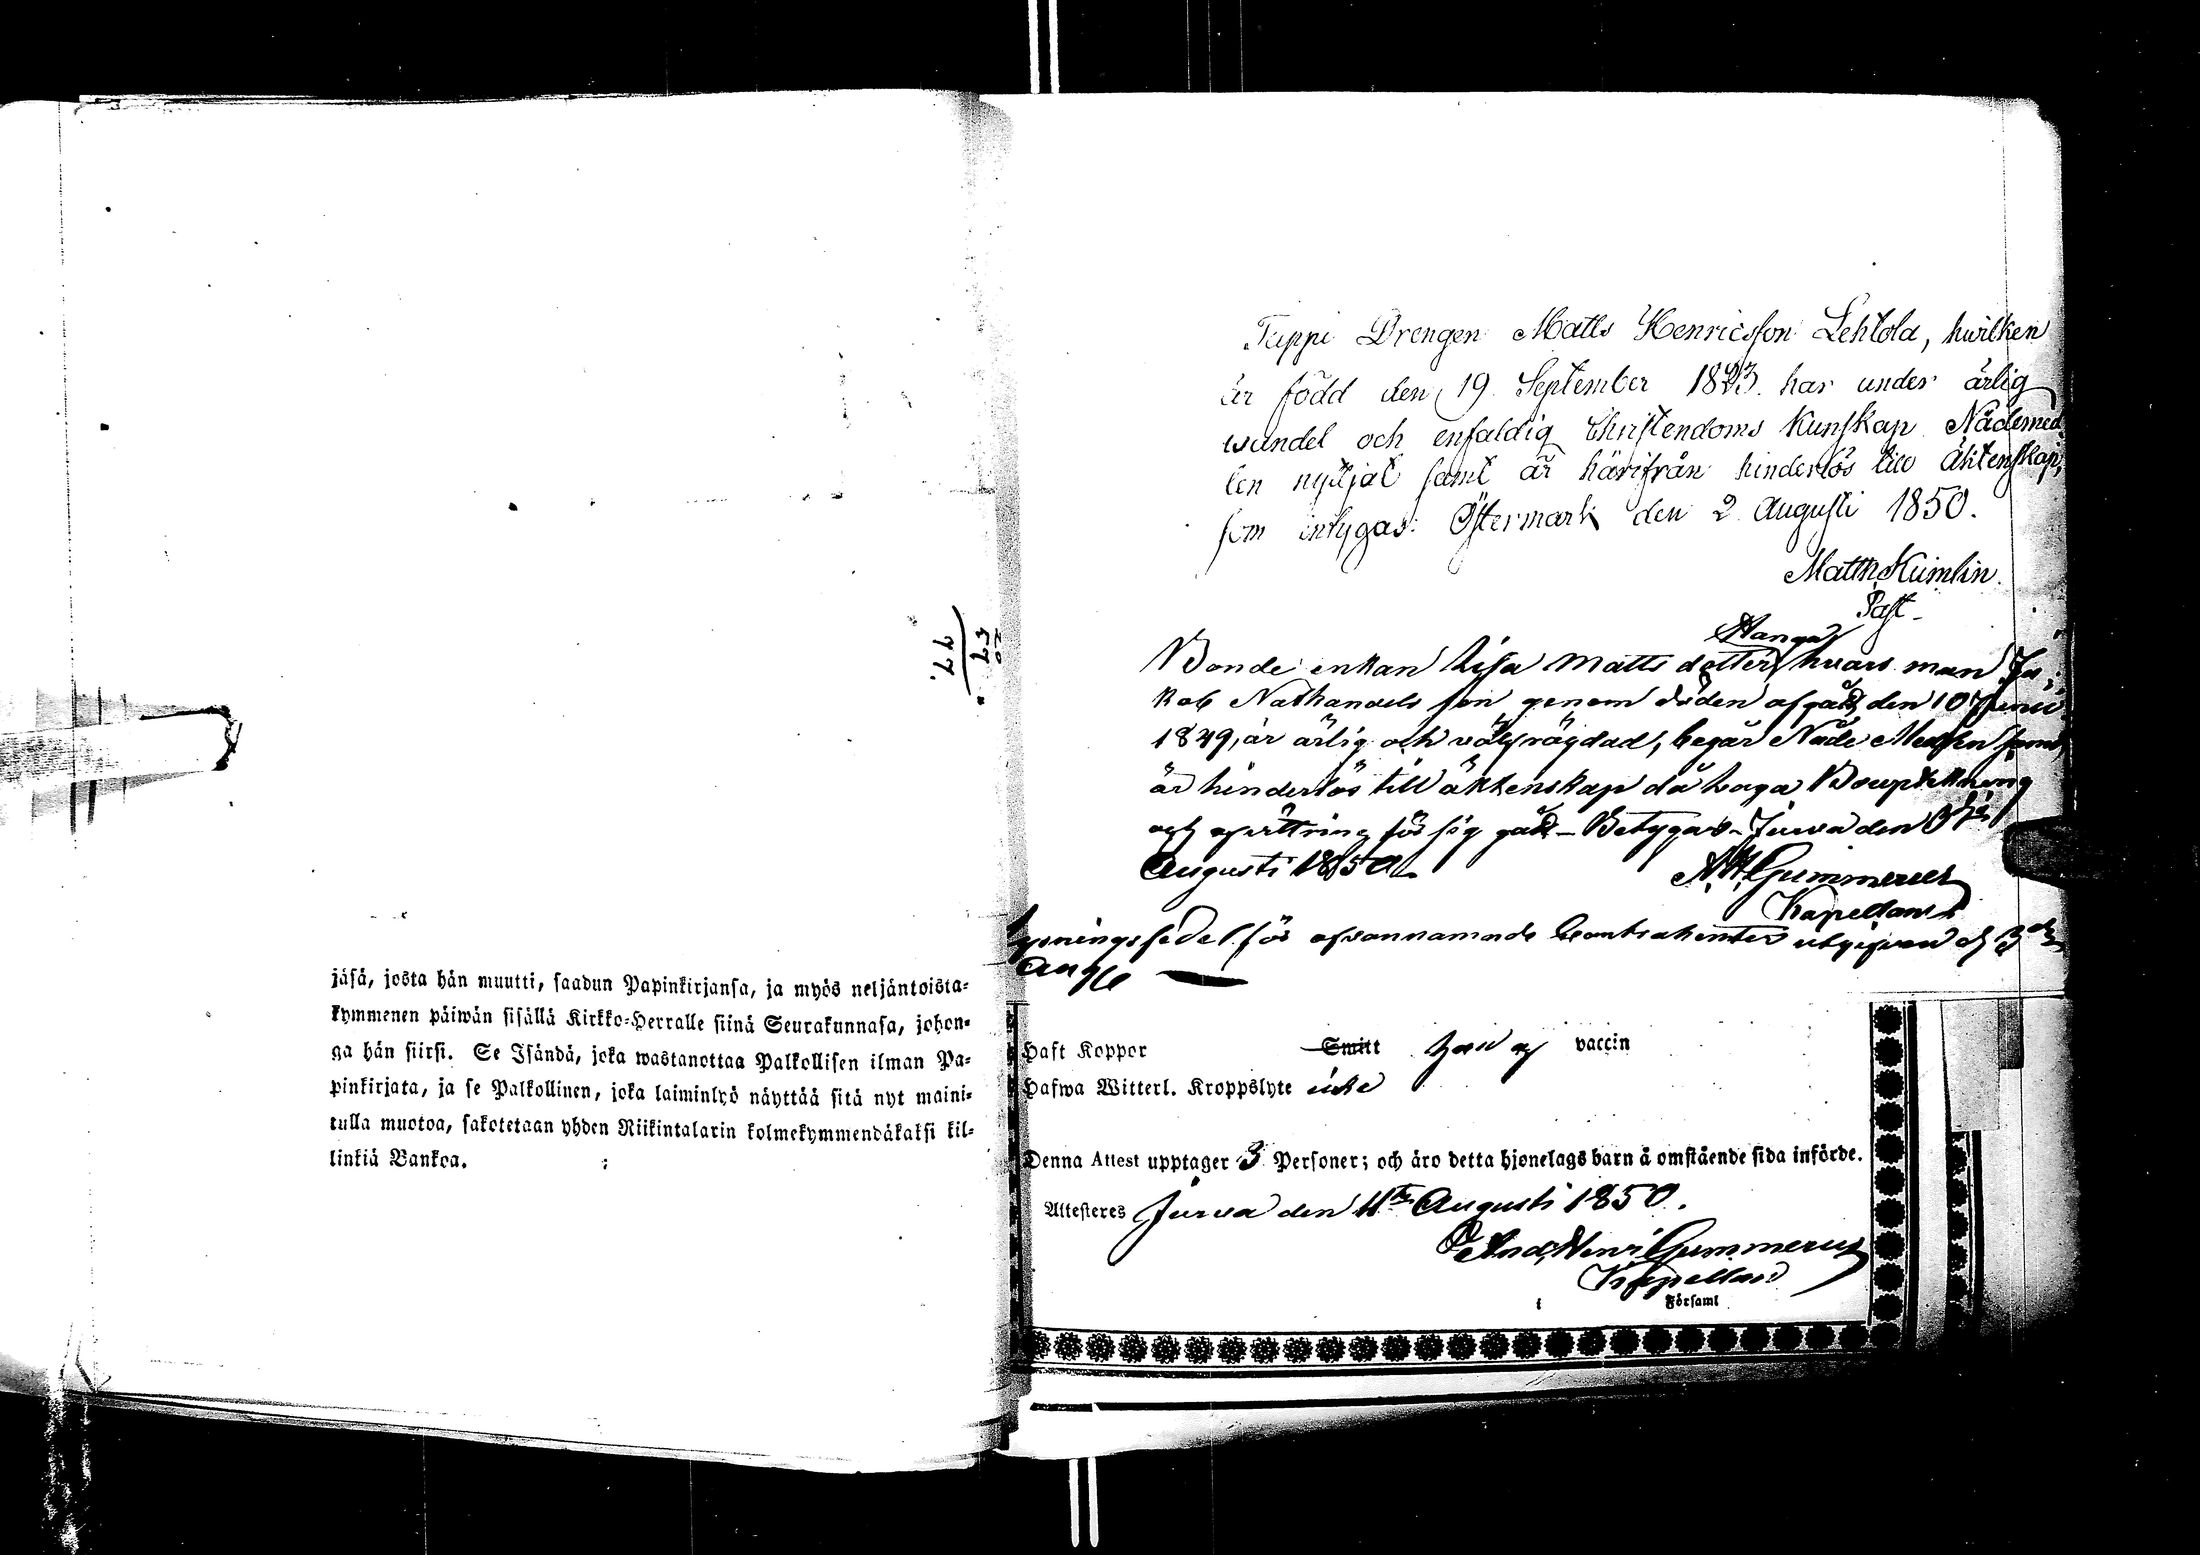 jäsä, josta hän muutti, saadun Papinkirjansa, ja myös neljäntoista-
kymmenen päiwän sisällä Kirkko-Herralle siinä Seurakunnasa, johon-
ga hän siirsi. Se Isändä, joka wastanottaa Palkollisen ilman Pa-
pinkirjata, ja se Palkollinen, joka laiminlyö näyttää sitä nyt maini-
tulla muotoa, sakotetaan yhden Riikintalarin kolmekymmendäkaksi kil-
linkiä Bankoa.
20
57
77.
Teppi Drengen Matts Henricsson Lehtola, hwilken
är född den 19 September 1823. har under ärlig
wandel och enfaldig Christendoms Kunskap Nådemed-
len nyttjat samt är härifrån hinderlös till Äktenskap,
som intygas: Östermark den 2 Augusti 1850.
Matth. Kumlin.
Past.
Hanga
Bonde enkan Lisa Matts dotter hvars man Ja-
kob Nathanaels son genom döden afgått den 10 Junii
1849, är ärlig och välfrägdad, begår Nåde Medlen samt
är hinderlös till äktenskap då Laga Bouptekning
och afvittring för sig gått – Betygas – Jurva den
Augusti 1850.
A. H. Gummerus
Kapellan
Lysningssedel för ofvannamnde Contrahenter utgifven d. 3
Aug
Haft Koppor Smitt af vaccin
Hafwa Witterl. Kroppslyte icke
Denna Attest upptager 3 Personer; och äro detta hjonelags barn å omstående sida införde.
Attesteres Jurva den 11te Augusti 1850.
And. Henr. Gummerus
Kapellan
i Församl